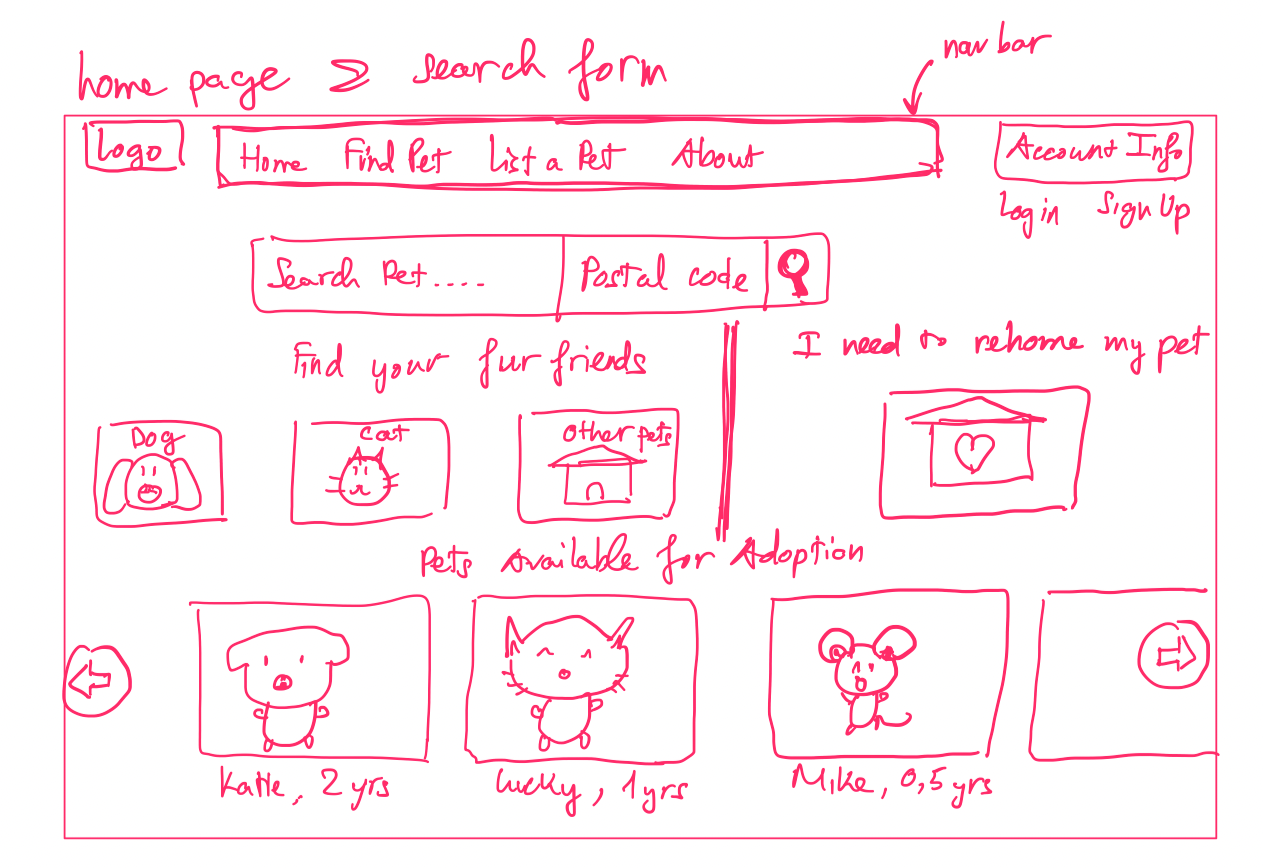 nav bar
home page Σ search form
Logo
Home Find Pet List a Pet About
Account Info
Log in Sign Up
Search Pet.... Postal code
Find your fur friends
I need to rehome my pet
Dog
Cat
Other pets
Pets Available for Adoption
Katie, 2 yrs
Lucky, 1 yrs
Mike, 0,5 yrs